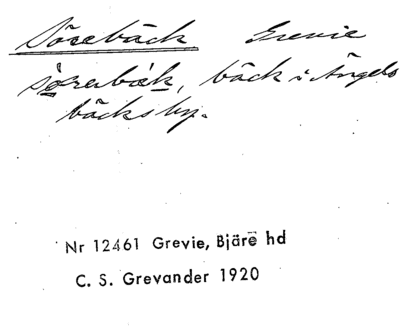 Sörebäck Grevie
sörabäk, bäck i Ängels
bäcksby.
Nr 12461 Grevie, Bjäre hd
C. S. Grevander 1920